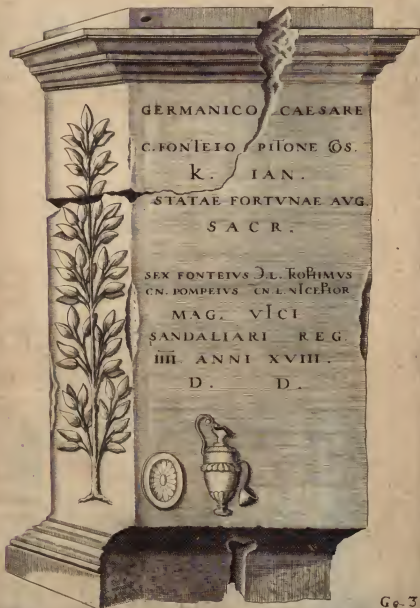 GERMANICO CAESARE
C. FONTEIO PITONE COS.
K. IAN.
STATAE FORTVNAE AVG.
SACR.
SEX FONTEIVS Ɔ. L. TROPHIMVS
CN. POMPEIVS CN. L. NICEPHOR
MAG. VICI
SANDALIARI REG.
IIII ANNI XVIII.
D. D.